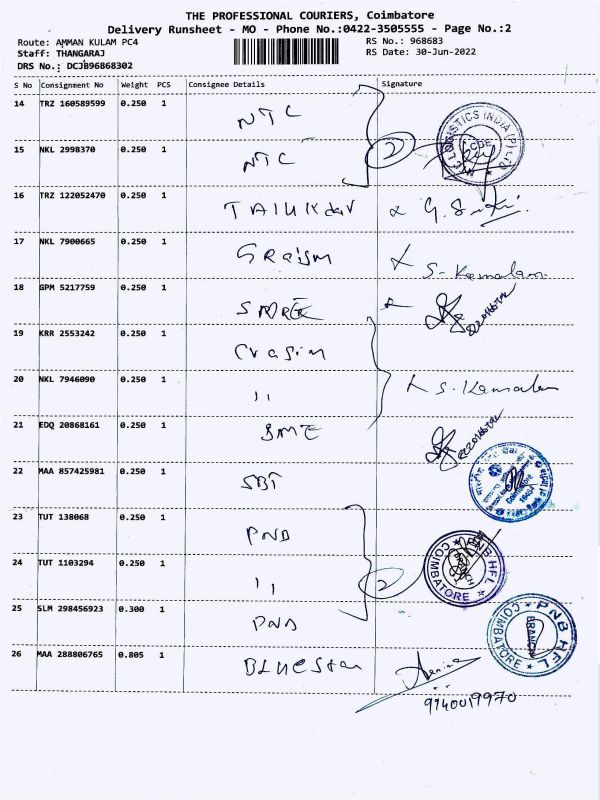 THE PROFESSIONAL COURIERS, Coimbatore
Delivery Runsheet - MO - Phone No.:0422-3505555 - Page No.:2
Route: AMMAN KULAM PC4 RS No.: 968683
Staff: THANGARAJ RS Date: 30-Jun-2022
DRS No.: DCJB96868302
S No Consignment No Weight PCS Consignee Details Signature
14 TRZ 160589599 0.250 1 NTC
15 NKL 2998370 0.250 1 NTC 2
LOGISTICS INDIA (P) LTD
16 TRZ 122052470 0.250 1
17 NKL 7900665 0.250 1 S. Kamalam
18 GPM 5217759 0.250 1
19 KRR 2553242 0.250 1
20 NKL 7946090 0.250 1 " S. Kamalam
21 EDQ 20868161 0.250 1
22 MAA 857425981 0.250 1 SBI
23 TUT 138068 0.250 1 PNB
24 TUT 1103294 0.250 1 " 2
PNB HFL BRANCH COIMBATORE
25 SLM 298456923 0.300 1 PNB
PNB HFL BRANCH COIMBATORE
26 MAA 288806765 0.805 1 BLUEStar
9940019970